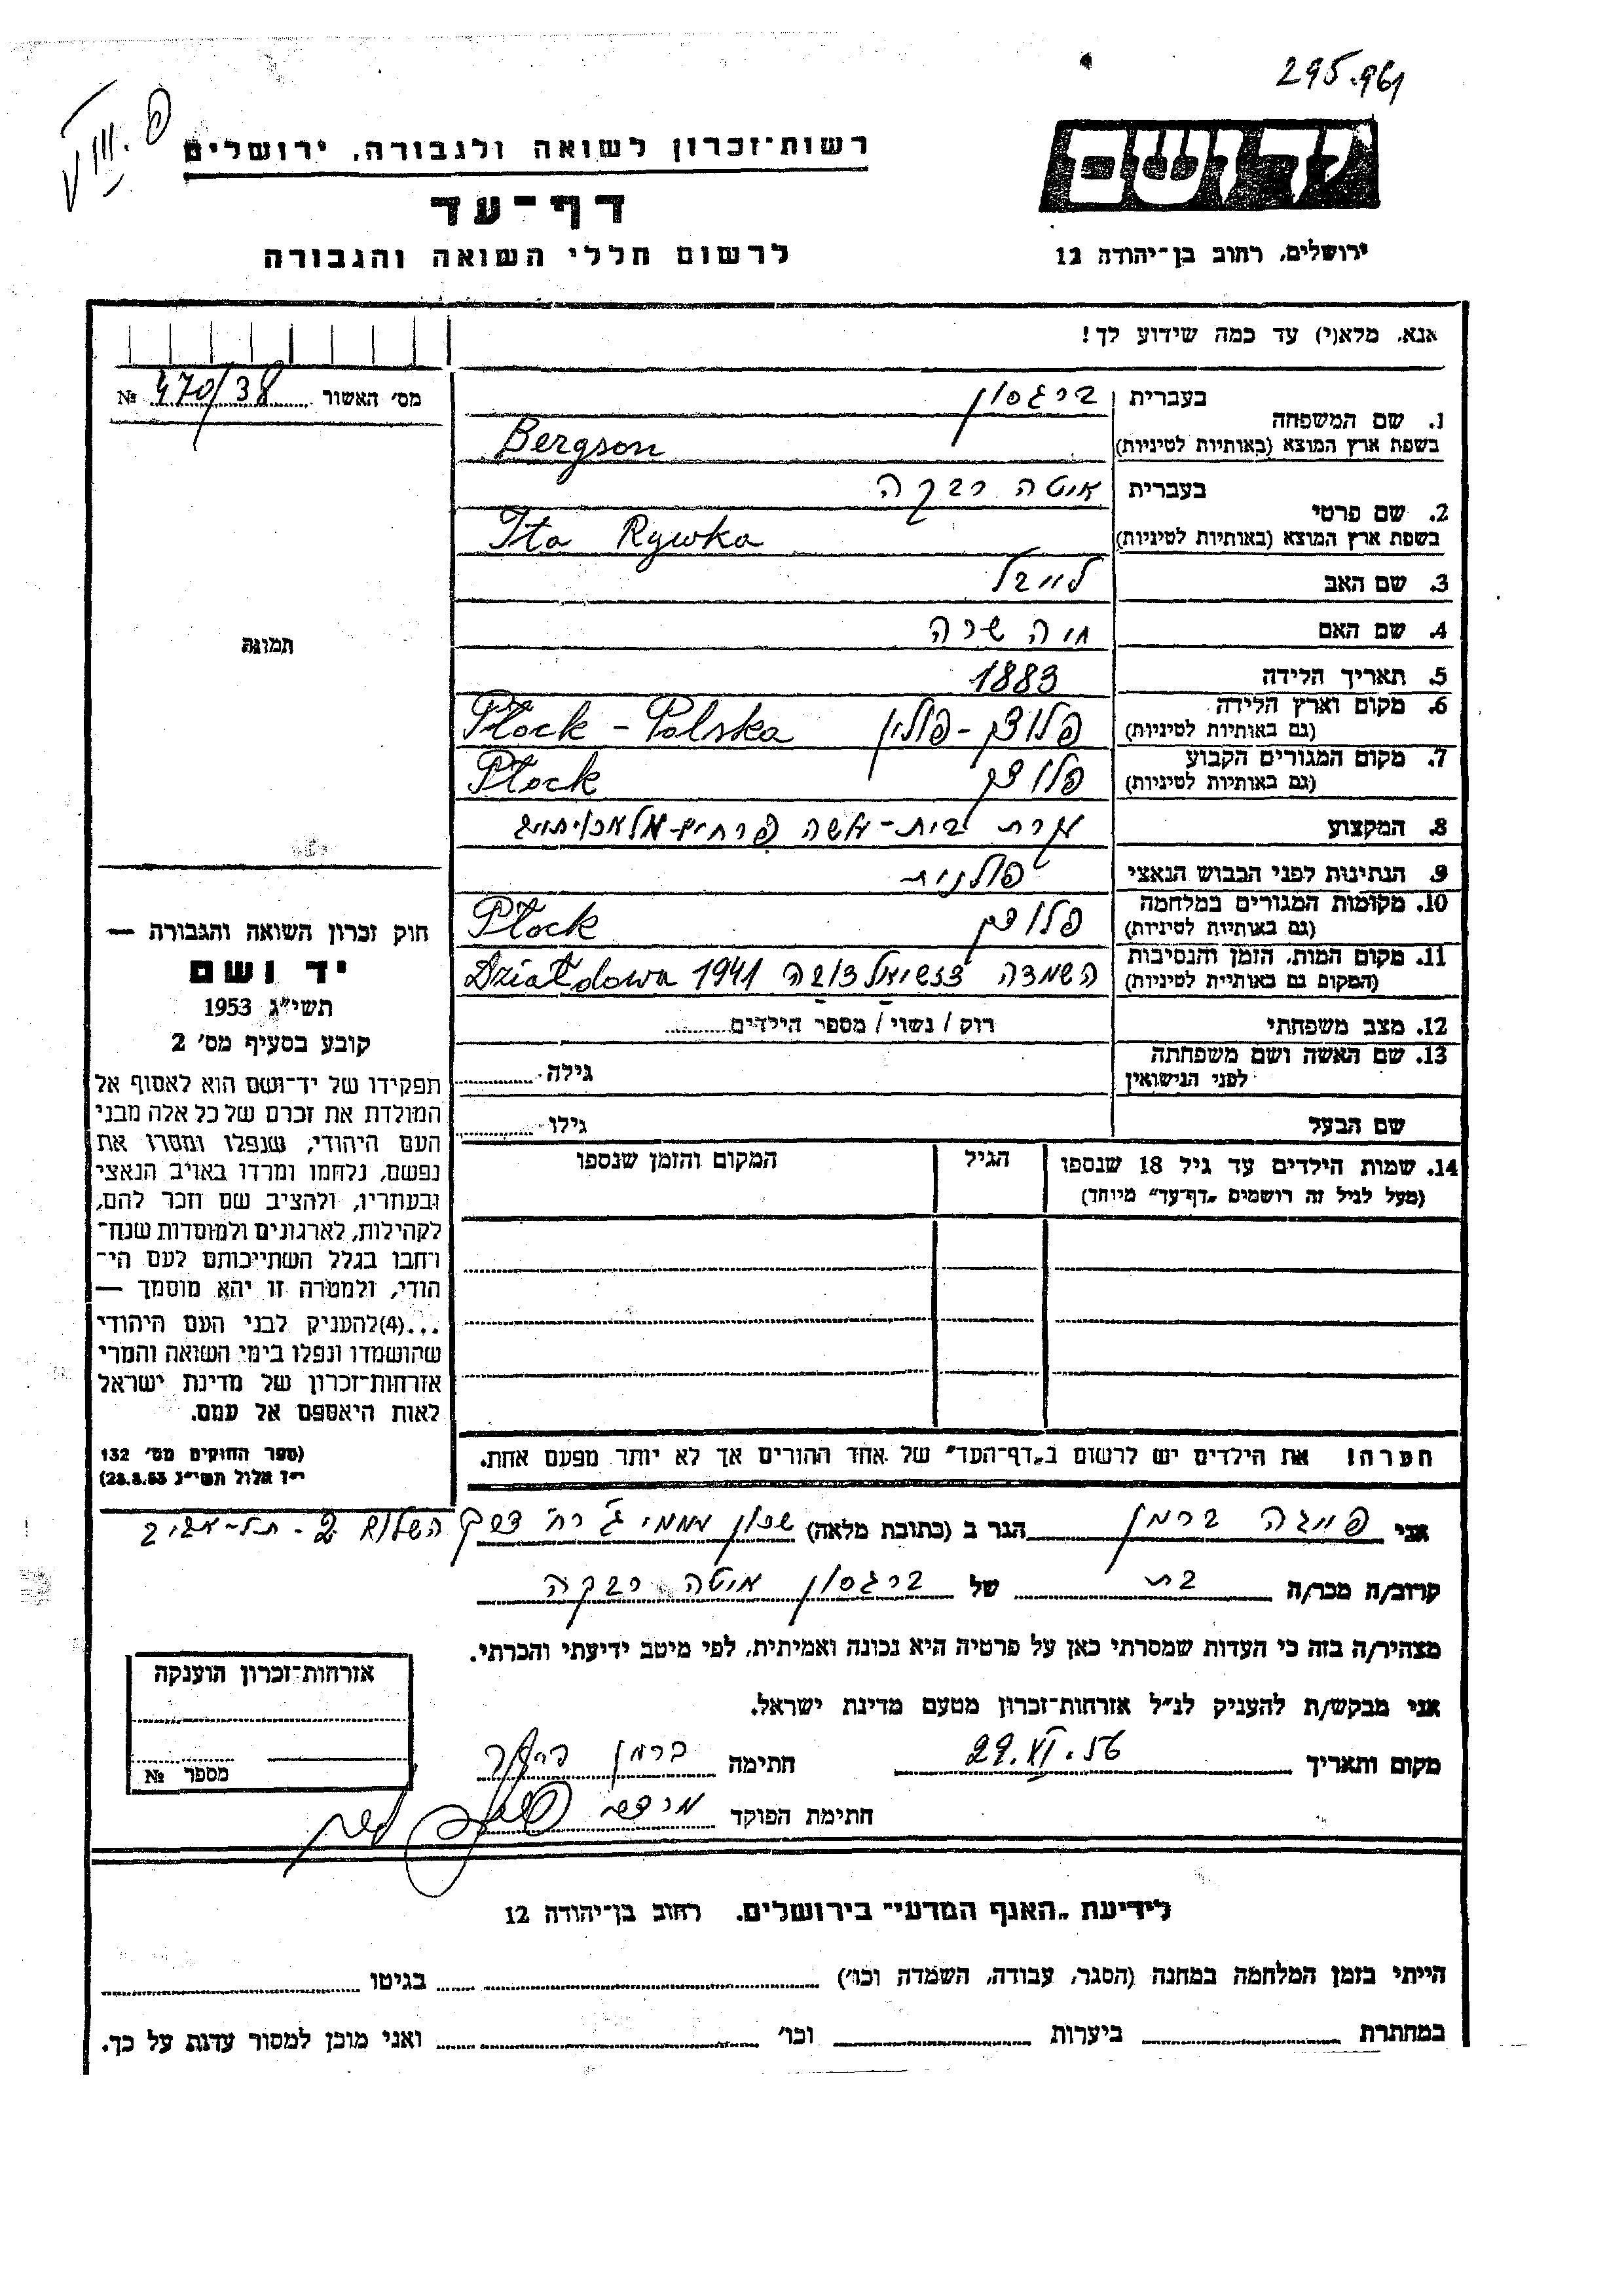 295.961
יד ושם
רשות־זכרון לשואה ולגבורה, ירושלים
דף־עד
לרשום חללי השואה והגבורה
ירושלים, רחוב בן־יהודה 12
אנא, מלא(י) עד כמה שידוע לך!
מס׳ האשור № 470/38
1. שם המשפחה בעברית ברגסון
בשפת ארץ המוצא (באותיות לטיניות) Bergson
2. שם פרטי בעברית איטה רבקה
בשפת ארץ המוצא (באותיות לטיניות) Ita Rywka
3. שם האב לייבל
4. שם האם חיה שרה
5. תאריך הלידה 1883
6. מקום וארץ הלידה (גם באותיות לטיניות) פלוצק - פולין Płock - Polska
7. מקום המגורים הקבוע (גם באותיות לטיניות) פלוצק Płock
8. המקצוע עקרת בית - עשה פרחים
9. הנתינות לפני הכבוש הנאצי פולנית
10. מקומות המגורים במלחמה (גם באותיות לטיניות) פלוצק Płock
11. מקום המות, הזמן והנסיבות (המקום גם באותיות לטיניות) השמדה Działdowa 1941
12. מצב משפחתי רוק / נשוי / מספר הילדים
13. שם האשה ושם משפחתה לפני הנישואין גילה
שם הבעל גילו
14. שמות הילדים עד גיל 18 שנספו הגיל המקום והזמן שנספו
(מעל לגיל זה רושמים „דף־עד" מיוחד)
הערה! את הילדים יש לרשום ב„דף־העד" של אחד ההורים אך לא יותר מפעם אחת.
תמונה
חוק זכרון השואה והגבורה —
יד ושם
תשי״ג 1953
קובע בסעיף מס׳ 2
תפקידו של יד־ושם הוא לאסוף אל
המולדת את זכרם של כל אלה מבני
העם היהודי, שנפלו ומסרו את
נפשם, נלחמו ומרדו באויב הנאצי
ובעוזריו, ולהציב שם וזכר להם,
לקהילות, לארגונים ולמוסדות שנח־
רחבו בגלל השתייכותם לעם הי־
הודי, ולמטרה זו יהא מוסמך —
...(4)להעניק לבני העם היהודי
שהושמדו ונפלו בימי השואה והמרי
אזרחות־זכרון של מדינת ישראל
לאות היאספם אל עמם.
(ספר החוקים מס׳ 132
י״ז אלול תשי״ג 28.8.53)
אני פייגה ברמן הגר ב (כתובת מלאה) שכון ממי ג׳ רח׳ דרך השלום 2 - תל-אביב
קרוב/ה מכר/ה בת של ברגסון איטה רבקה
מצהיר/ה בזה כי העדות שמסרתי כאן על פרטיה היא נכונה ואמיתית, לפי מיטב ידיעתי והכרתי.
אני מבקש/ת להעניק לנ״ל אזרחות־זכרון מטעם מדינת ישראל.
מקום ותאריך 29.VI.56 חתימה ברמן
חתימת הפוקד
אזרחות־זכרון הוענקה
מספר №
לידיעת „האגף המדעי" בירושלים. רחוב בן־יהודה 12
הייתי בזמן המלחמה במחנה (הסגר, עבודה, השמדה וכו׳) בגיטו
במחתרת ביערות וכו׳ ואני מוכן למסור עדות על כך.